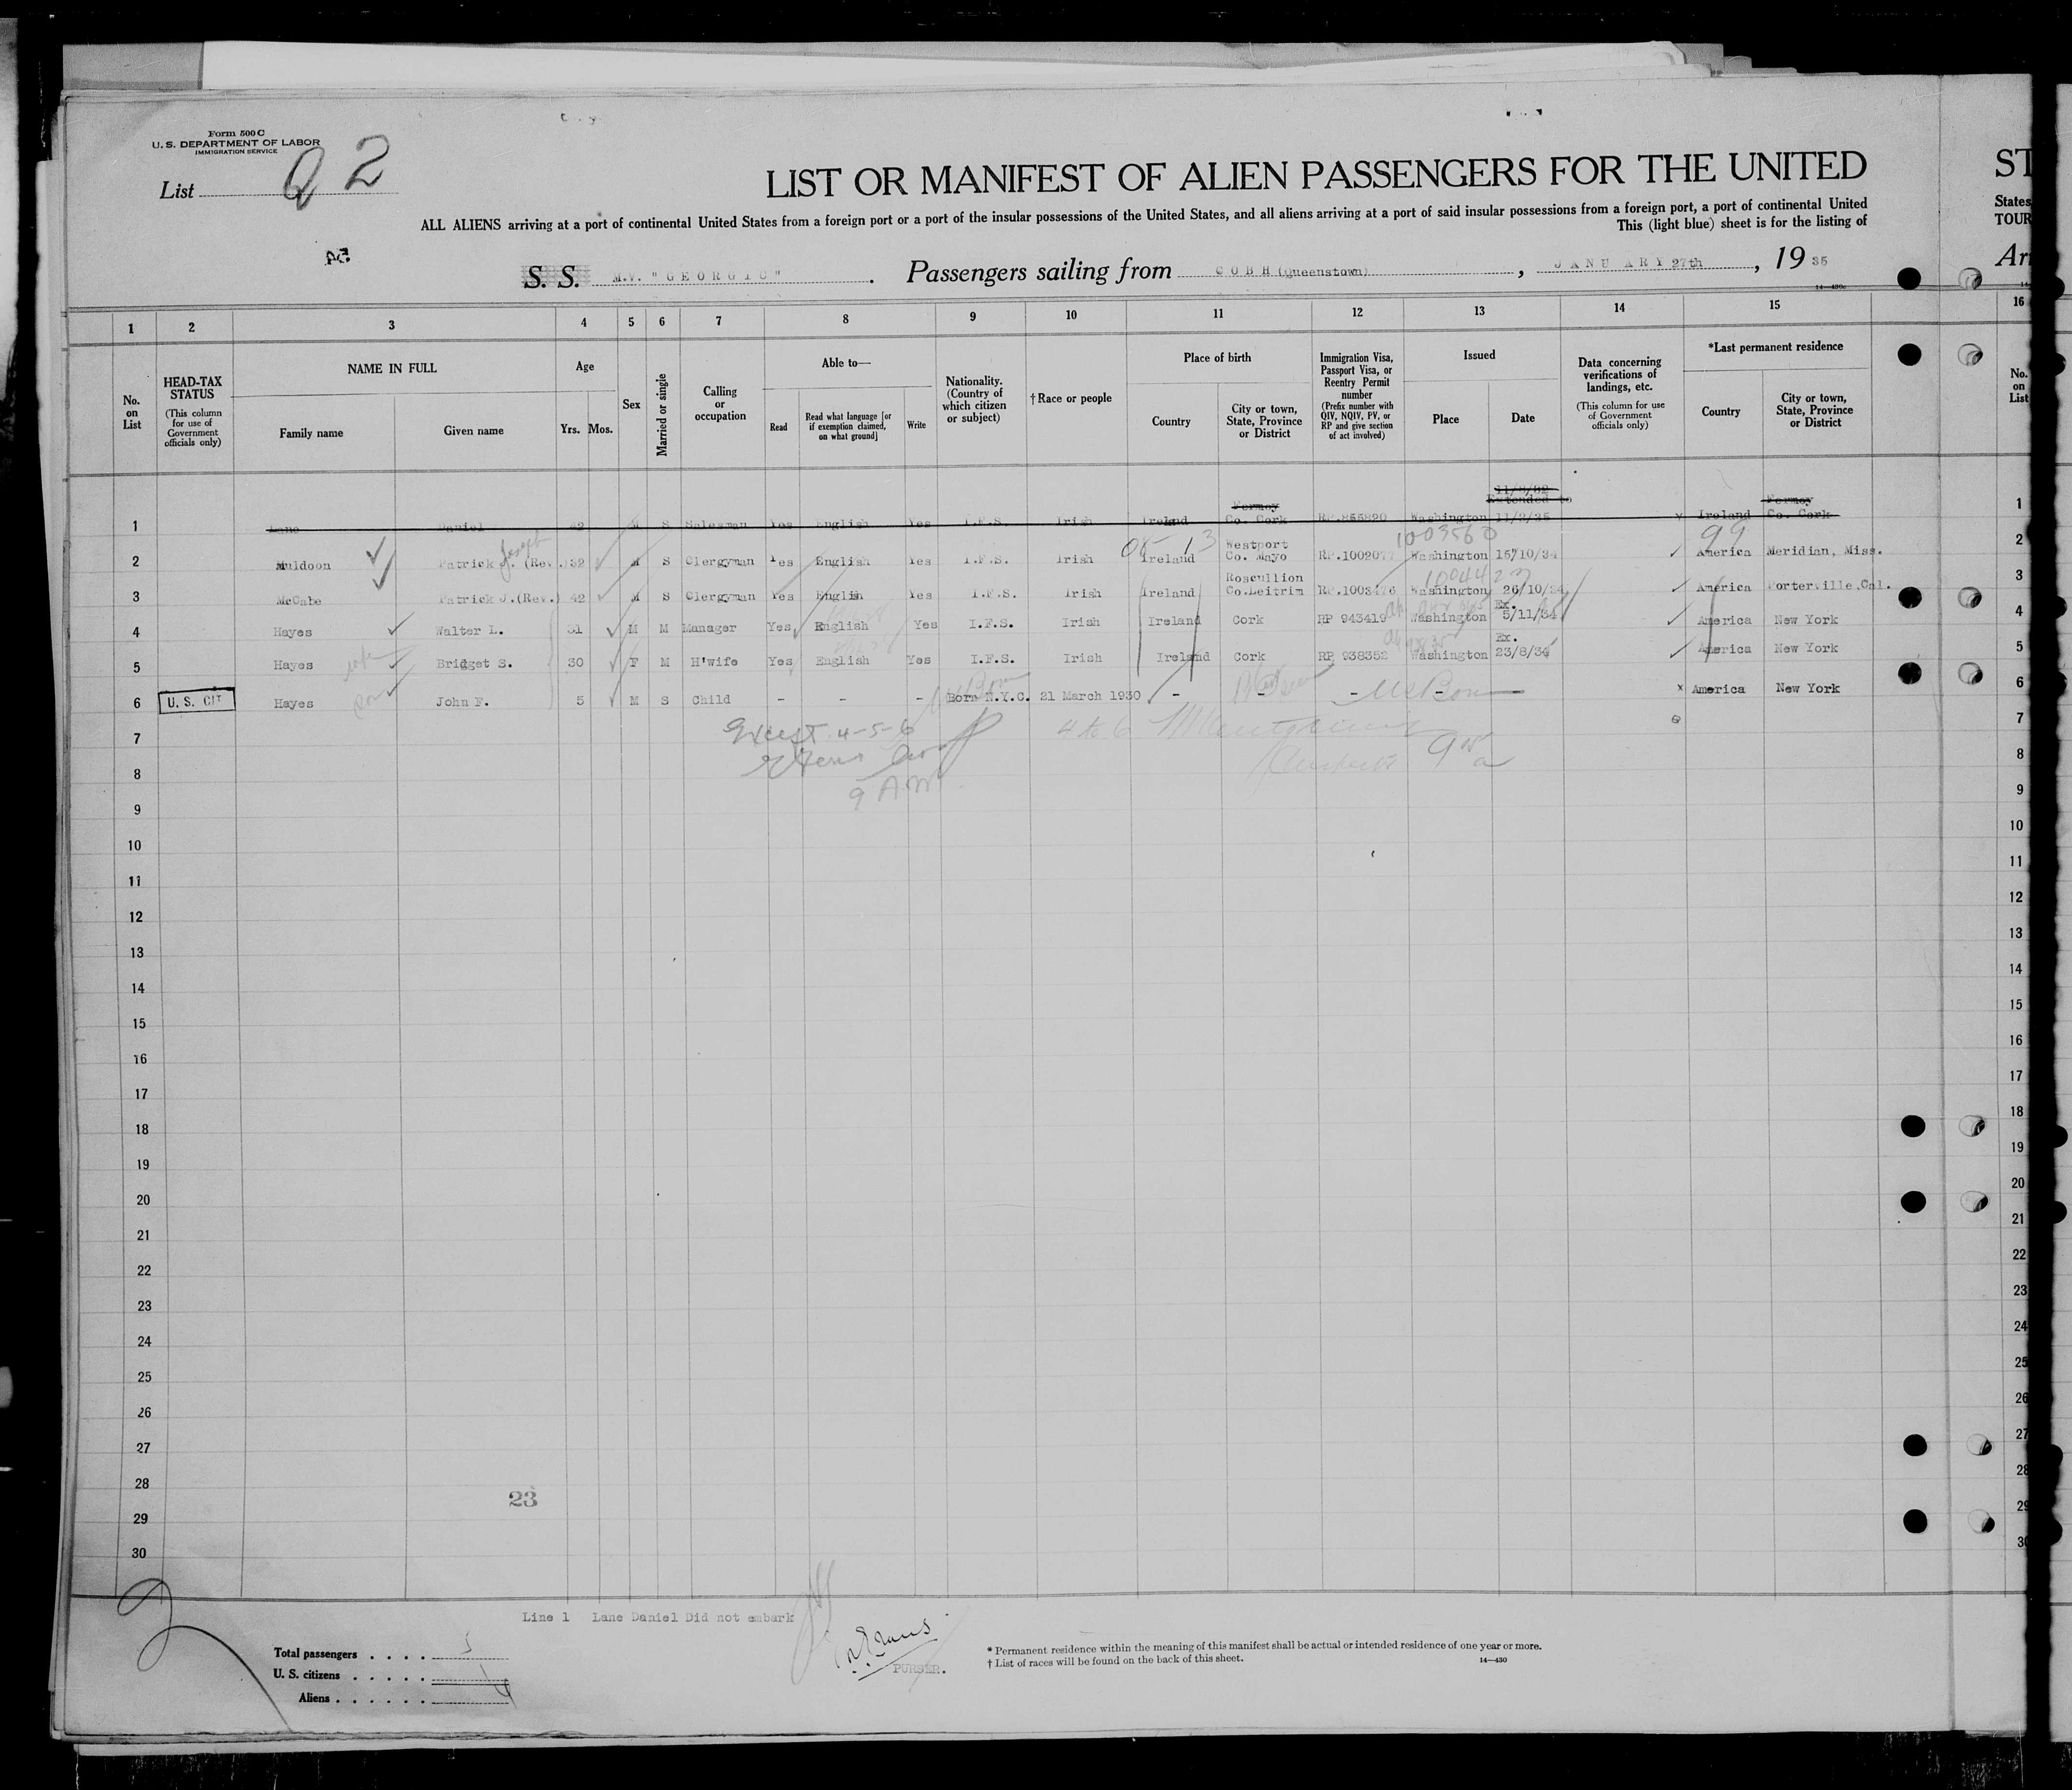 Form 500 C
U. S. DEPARTMENT OF LABOR
IMMIGRATION SERVICE
List 2 2
LIST OR MANIFEST OF ALIEN PASSENGERS FOR THE UNITED
ST
ALL ALIENS arriving at a port of continental United States from a foreign port or a port of the insular possessions of the United States, and all aliens arriving at a port of said insular possessions from a foreign port, a port of continental United
States
This (light blue) sheet is for the listing of
TOUR
S. S. M.V. "GEORGIC". Passengers sailing from COBH (Queenstown), JANUARY 27th, 19 35
Arr
14—430
1 2 3 4 5 6 7 8 9 10 11 12 13 14 15 16
No. on List
HEAD-TAX STATUS
(This column for use of Government officials only)
NAME IN FULL
Family name Given name
Age
Yrs. Mos.
Sex
Married or single
Calling or occupation
Able to—
Read
Read what language [or if exemption claimed, on what ground]
Write
Nationality. (Country of which citizen or subject)
† Race or people
Place of birth
Country
City or town, State, Province or District
Immigration Visa, Passport Visa, or Reentry Permit number
(Prefix number with QIV, NQIV, PV, or RP and give section of act involved)
Issued
Place Date
Data concerning verifications of landings, etc.
(This column for use of Government officials only)
*Last permanent residence
Country
City or town, State, Province or District
No. on List
1 Lane Daniel 42 M S Salesman Yes English Yes I.F.S. Irish Ireland Fermoy Co. Cork RP.855820 Washington Extended to 11/2/35 x Ireland Fermoy Co. Cork 1
1003560
05 13 99
2 Muldoon Patrick J. Joseph (Rev.) 32 M S Clergyman Yes English Yes I.F.S. Irish Ireland Westport Co. Mayo Washington 15/10/34 America Meridian, Miss. 2
3 McCabe Patrick J.(Rev.) 42 M S Clergyman Yes English Yes I.F.S. Irish Ireland Roscullion Co.Leitrim RP.1003476 Washington 26/10/34 America Porterville,Cal. 3
4 Hayes Walter L. 31 M M Manager Yes English Yes I.F.S. Irish Ireland Cork RP 943419 Washington Ex. 5/11/34 America New York 4
5 Hayes wife Bridget S. 30 F M H'wife Yes English Yes I.F.S. Irish Ireland Cork RP 938352 Washington Ex. 23/8/34 America New York 5
6 U. S. CIT Hayes son John F. 5 M S Child - - - Born N.Y.C. 21 March 1930 - - - US Born - x America New York 6
7 Except 4-5-6 4 to 6 7
8 9 05 a 8
9 9 AM 9
10 10
11 11
12 12
13 13
14 14
15 15
16 16
17 17
18 18
19 19
20 20
21 21
22 22
23 23
24 24
25 25
26 26
27 27
28 28
23
29 29
30 30
Line 1 Lane Daniel Did not embark
Total passengers . . . . 5
U. S. citizens . . . . . . 1
Aliens . . . . . . 4
Evans
PURSER.
* Permanent residence within the meaning of this manifest shall be actual or intended residence of one year or more.
† List of races will be found on the back of this sheet.
14—430